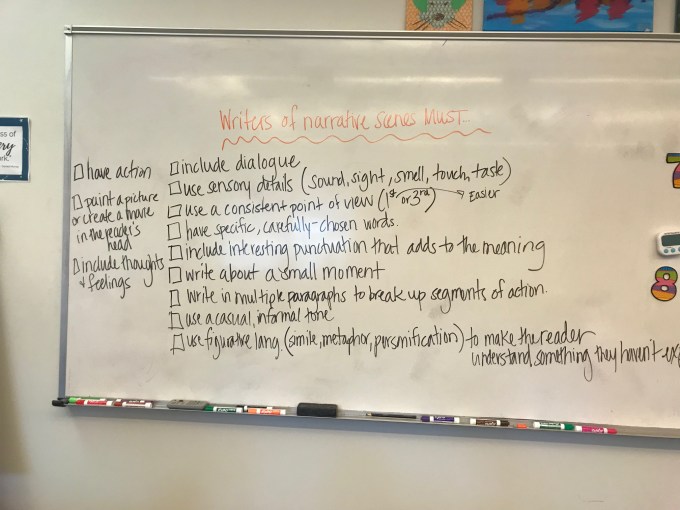 Writers of narrative scenes MUST...
☐ have action
☐ paint a picture
or create a movie
in the reader's
head
☐ include thoughts
& feelings
☐ include dialogue
☐ use sensory details (sound, sight, smell, touch, taste)
☐ use a consistent point of view (1st or 3rd) → Easier
☐ have specific, carefully-chosen words.
☐ include interesting punctuation that adds to the meaning
☐ write about a small moment
☐ Write in multiple paragraphs to break up segments of action.
☐ use a casual, informal tone
☐ use figurative lang. (simile, metaphor, personification) to make the reader
understand something they haven't
7
8